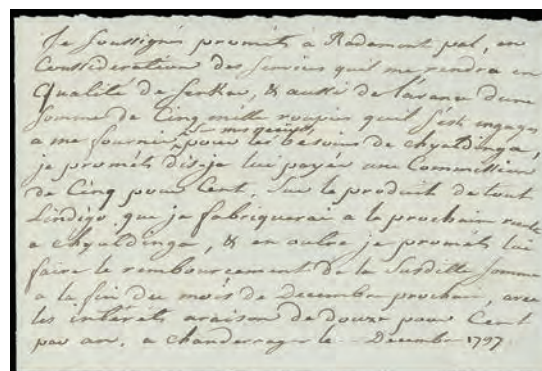 Je soussignés promets a Radamont pal, en
Consideration des services quil me rendra en
Qualité de Serkar, & aussi de lavance dune
somme de Cinq mille roupies quil s'est engagé
a me fournir pour les besoins de Chyaldinga,
je promets disje lui payer une Commission
de Cinq pour Cent, sur le produit de tout
Lindigo que je fabriquerai a la prochaine
a Chyaldinga, & en outre je promets lui
faire le remboursement de la Susditte somme
a la fin du mois de Decembre prochain, avec
les intérèts araison de douze pour Cent
par an. a Chandernagor le Decembre 1797